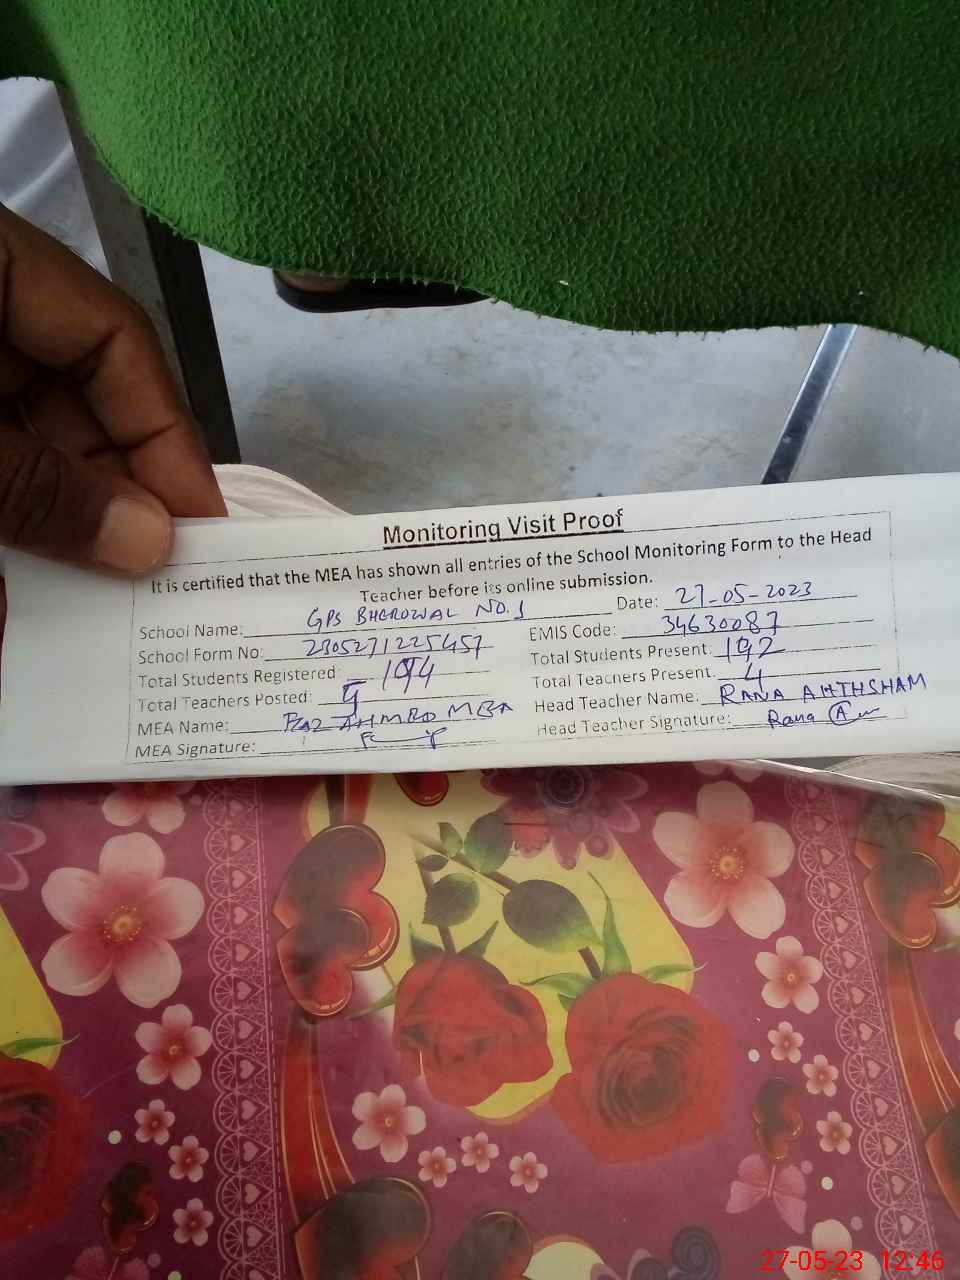 Monitoring Visit Proof
It is certified that the MEA has shown all entries of the School Monitoring Form to the Head
Teacher before its online submission.
School Name: GPS BHEROWAL NO.1 Date: 27-05-2023
School Form No: 2305271225457 EMIS Code: 34630087
Total Students Registered: 194 Total Students Present: 192
Total Teachers Posted: Total Teachers Present: 4
MEA Name: AHMED MEA Head Teacher Name: RANA AHTHSHAM
MEA Signature: Head Teacher Signature: Rana
27-05-23 12:46